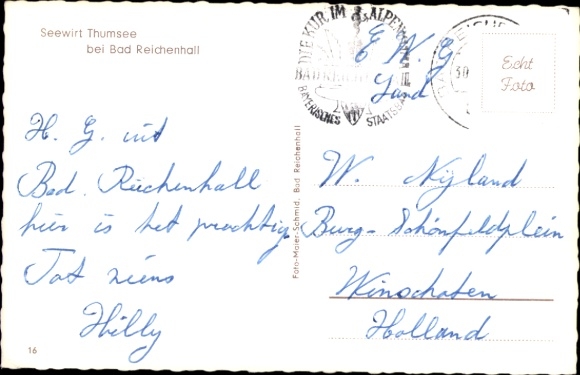 Seewirt Thumsee
bei Bad Reichenhall
DIE KUR IM ALPEN
BAYERISCHES STAATSBAD
30
Echt
Foto
E N G
Land
H. G. uit
Bad. Reichenhall
hier is het prachtig
Tot ziens
Hilly
Foto-Maier-Schmid, Bad Reichenhall
W. Nijland
Burg-Schönfeldplein
Winschoten
Holland
16